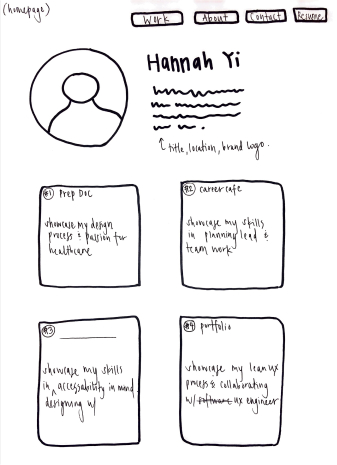 (homepage)
Work About Contact Resume
Hannah Yi
title, location, brand logo.
#1 Prep Doc
showcase my design
process & passion for
healthcare
#2 career cafe
showcase my skills
in planning, lead &
team work
#3
showcase my skills
in ^ accessability in mind
designing w/
#4 portfolio
showcase my lean ux
process & collaborating
w/ software ux engineer